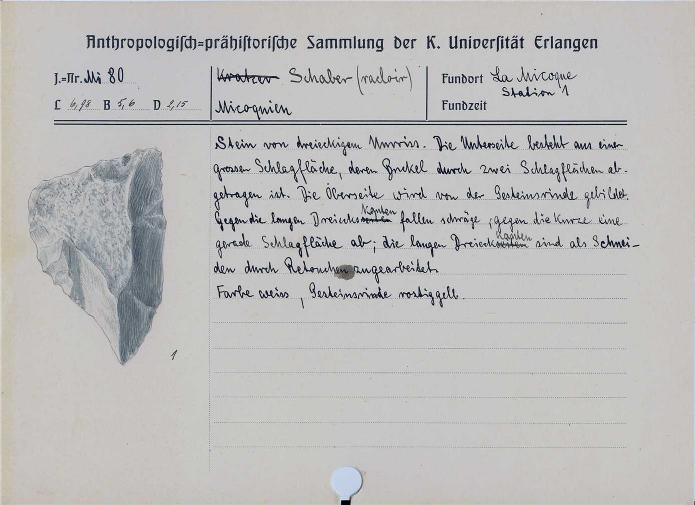 Anthropologisch=prähistorische Sammlung der K. Universität Erlangen
J.=Nr. Mi 80
Kratzer Schaber (racloir)
Fundort La Micoque
Station 1
L 6,98 B 5,6 D 2,15
Micoquien
Fundzeit
Stein von dreieckigem Umriss. Die Unterseite besteht aus einer
grossen Schlagfläche, deren Buckel durch zwei Schlagflächen ab-
getragen ist. Die Oberseite wird von der Gesteinsrinde gebildet.
Gegen die langen Dreiecks kanten fallen schräge, gegen die Kurze eine
gerade Schlagfläche ab; die langen Dreiecks kanten sind als Schnei-
den durch Retouchen zugearbeitet.
Farbe weiss, Gesteinsrinde rostiggelb.
1